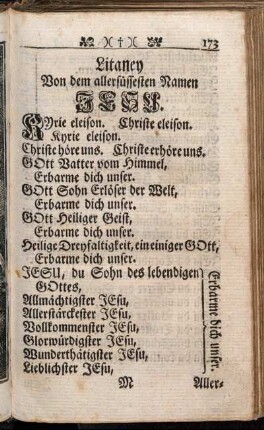 173
Litaney
Von dem allersüssesten Namen
JESU.
KYrie eleison. Christe eleison.
Kyrie eleison.
Christe höre uns. Christe erhöre uns.
GOtt Vatter vom Himmel,
Erbarme dich unser.
GOtt Sohn Erlöser der Welt,
Erbarme dich unser.
GOtt Heiliger Geist,
Erbarme dich unser.
Heilige Dreyfaltigkeit, ein einiger GOtt,
Erbarme dich unser.
JESU, du Sohn des lebendigen
GOttes,
Allmächtigster JEsu,
Allerstärckester JEsu,
Vollkommenster JEsu,
Glorwürdigster JEsu,
Wunderthätigster JEsu,
Lieblichster JEsu,
Erbarme dich unser.
M Aller-